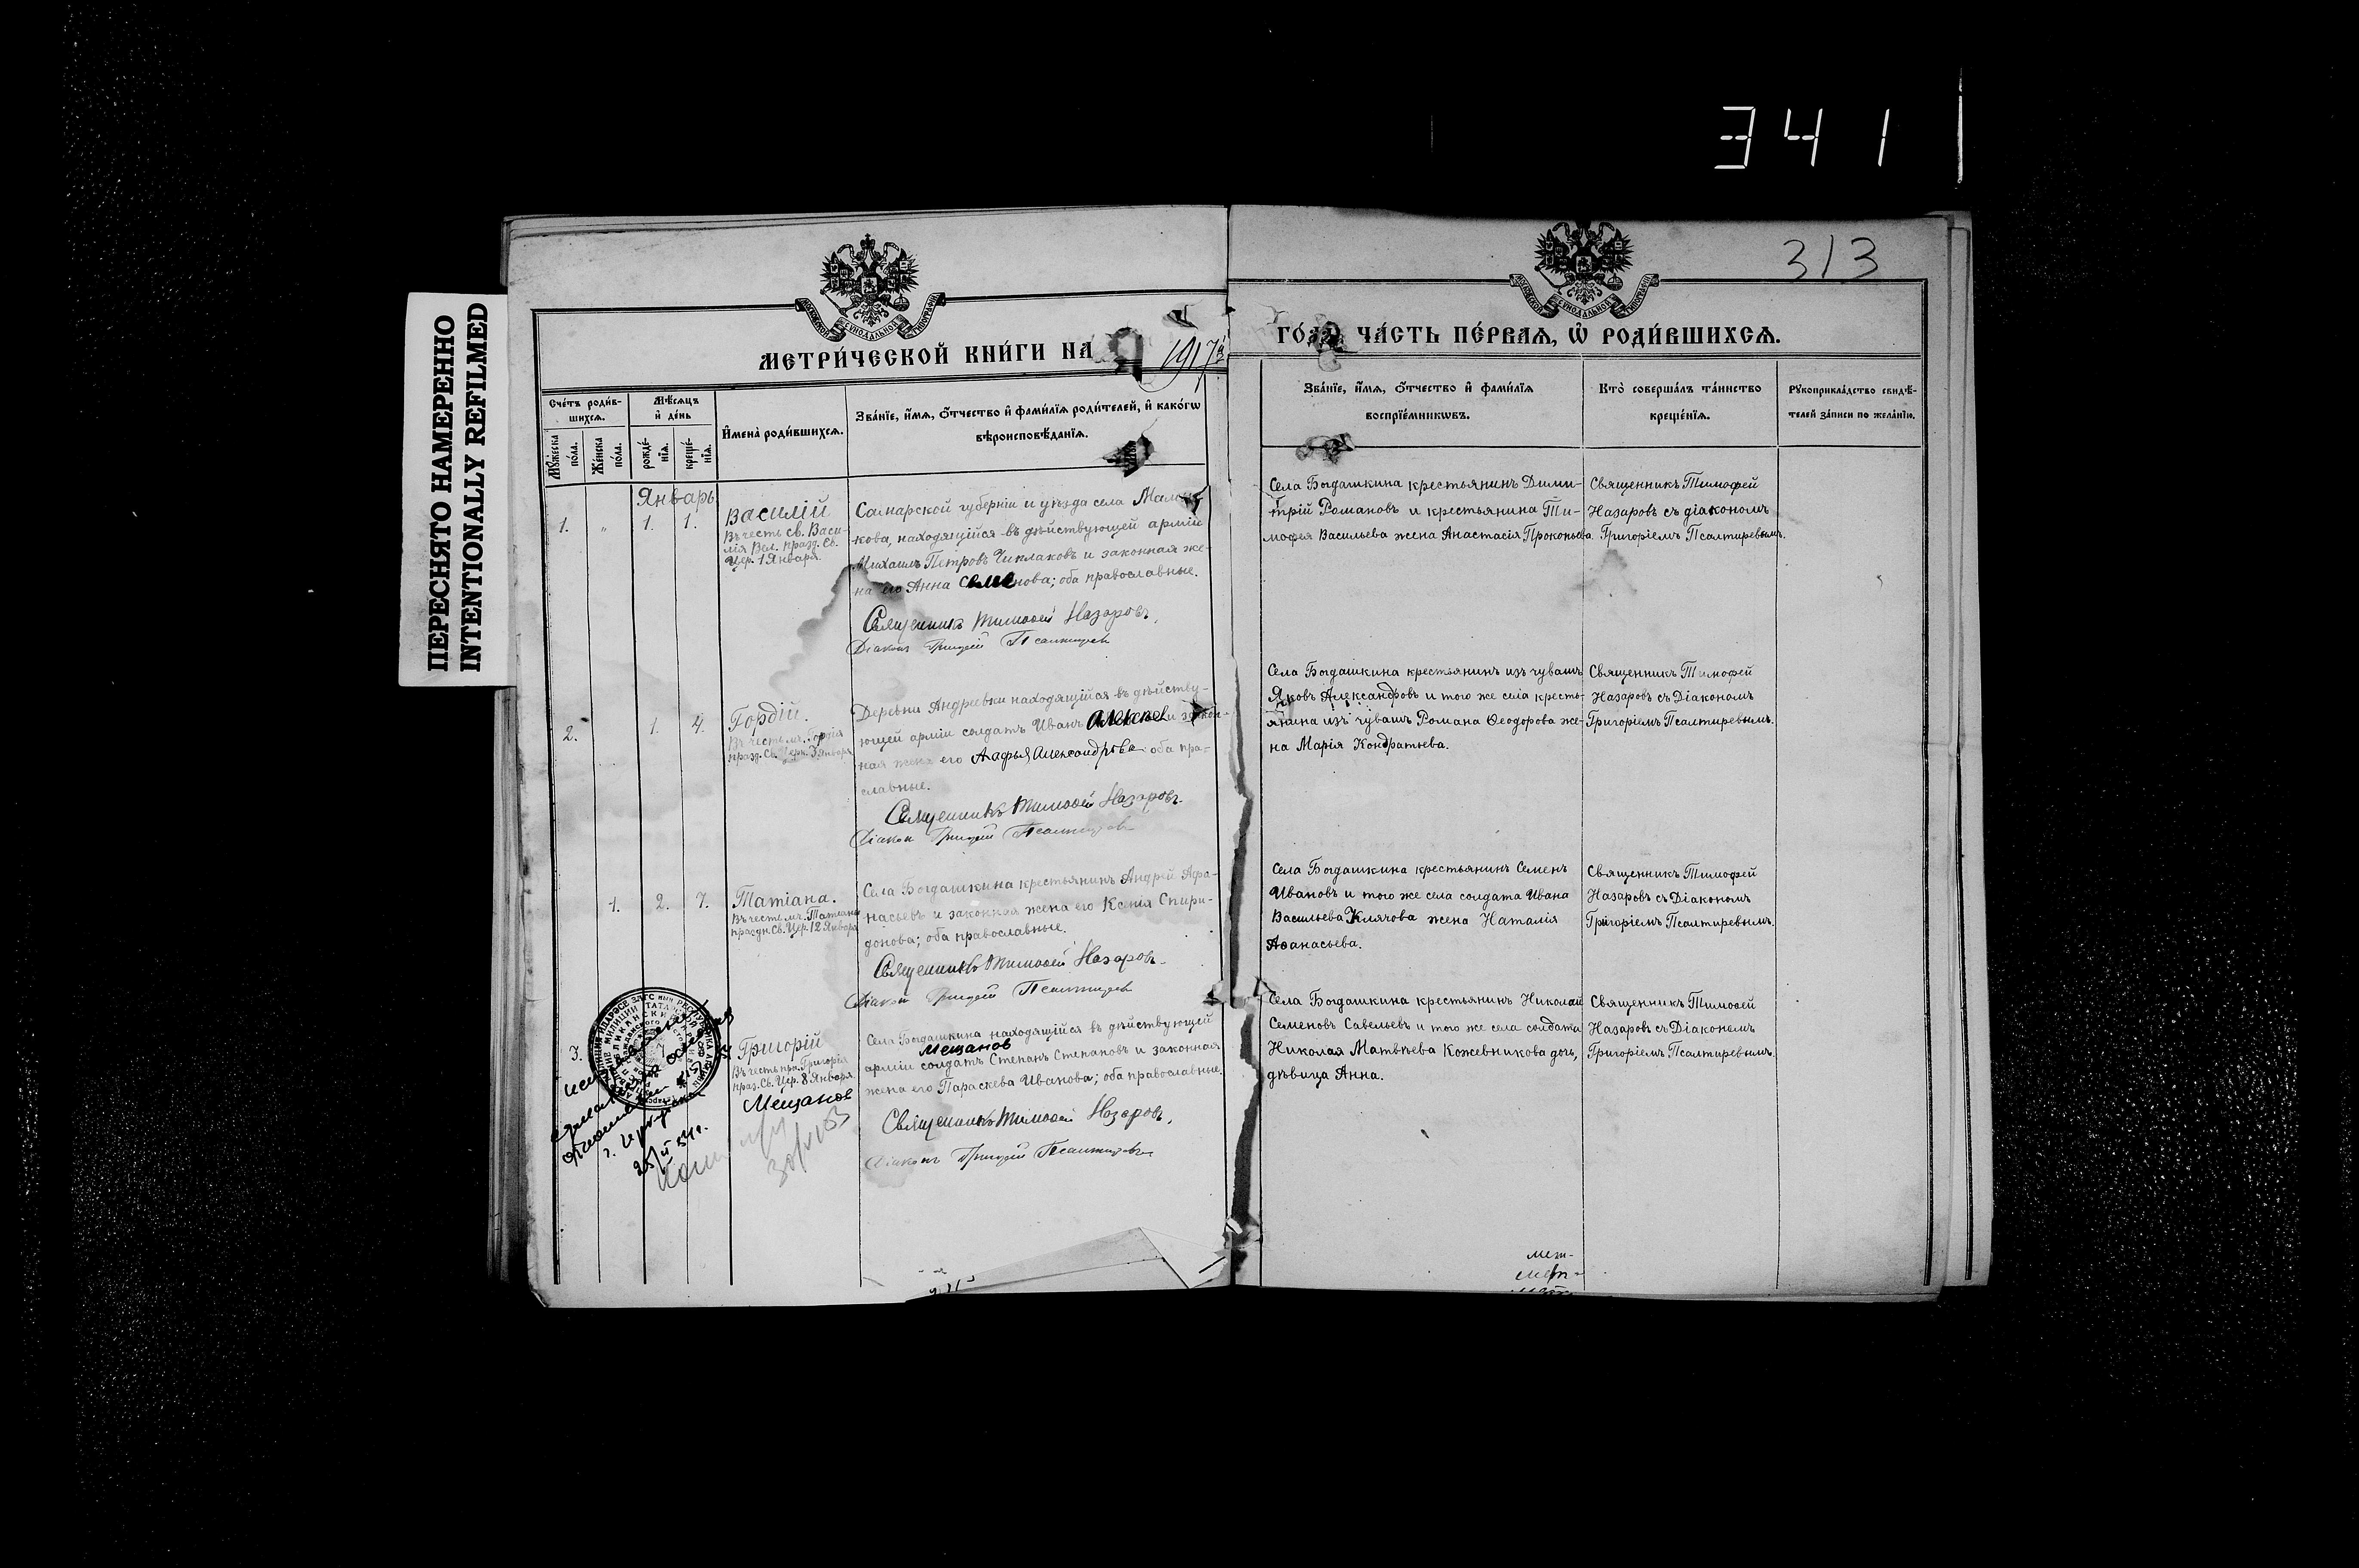 3411
ПЕРЕСНЯТО НАМЕРЕННО
INTENTIONALLY REFILMED
313
МОСКОВСКОЙ СѴНОДАЛЬНОЙ ТИПОГРАФІИ
МОСКОВСКОЙ СѴНОДАЛЬНОЙ ТИПОГРАФІИ
МЕТРИ́ЧЕСКОЙ КНИ́ГИ НА 1917й
ГО́ДЪ ЧА́СТЬ ПЕ́РВАѦ, Ѡ҆ РОДИ́ВШИХСѦ.
Сче́тъ роди́в-
шихсѧ.
Мꙋ́жеска по́ла.
Же́нска по́ла.
Мѣ́сѧцъ
и҆ де́нь
рожде́-
нїѧ.
креще́-
нїѧ.
И҆мена̀ роди́вшихсѧ.
Зва́нїе, и҆́мѧ, ѻ҆́тчество и҆ фами́лїѧ роди́телей, и҆ како́гѡ
вѣроисповѣ́данїѧ.
Зва́нїе, и҆́мѧ, ѻ҆́тчество и҆ фами́лїѧ
воспрїе́мникѡвъ.
Кто̀ соверша́лъ та́инство
креще́нїѧ.
Рꙋкоприкла́дство свидѣ́-
телей за́писи по жела́нїю.
Январь
1. " 1. 1.
Василій
Въ честь св. Васи-
лія Вел. празд. Св.
Цер. 1 Января.
Самарской губерніи и уѣзда села
кова, находящійся въ дѣйствующей арміи
Михаилъ Петровъ Чиклаковъ и законная же-
на его Анна Семенова; оба православные.
Священникъ Тимоѳей Назаровъ.
Діаконъ Григорій Псалтиревъ
Села Богдашкина крестьянинъ Дими-
трій Романовъ и крестьянина Ти-
мофея Васильева жена Анастасія Прокопьева.
Священникъ Тимофей
Назаровъ съ діакономъ
Григоріемъ Псалтиревымъ.
2. 1. 4.
Гордій.
Въ честь мч. Гордія
празд. Св. Церк. 3 Января
Деревни Андреевки находящійся въ дѣйству-
ющей арміи солдатъ Иванъ Алексеев и закон-
ная жена его Агафья Александрова оба пра-
славные.
Священникъ Тимоѳей Назаровъ.
Діакон Григорій Псалтирев
Села Богдашкина крестьянинъ изъ чувашъ
Яковъ Александровъ и того же села кресть-
янина изъ чувашъ Романа Ѳеодорова же-
на Марія Кондратьева.
Священникъ Тимофей
Назаровъ съ Діакономъ
Григоріемъ Псалтиревымъ.
1. 2. 7.
Татіана.
Въ честь мч. Татіаны
праздн. Св. Цер. 12 Января
Села Богдашкина крестьянинъ Андрей Афа-
насьевъ и законная жена его Ксенія Спири-
донова; оба православные.
Священникъ Тимоѳей Назаровъ.
Діакон Григорій Псалтирев
Села Богдашкина крестьянинъ Семенъ
Ивановъ и того же села солдата Ивана
Васильева Клячова жена Наталія
Аѳанасьева.
Священникъ Тимофей
Назаровъ съ Діакономъ
Григоріемъ Псалтиревымъ.
3.
Григорій
Въ честь прп. Григорія
праз. Св. Цер. 8 Января
Мещанов
Села Богдашкина находящійся въ дѣйствующей
Мещанов
арміи солдатъ Степанъ Степановъ и законная
жена его Параскева Иванова; оба православные.
Священникъ Тимоѳей Назаровъ.
Діаконъ Григорій Псалтиревъ
Села Богдашкина крестьянинъ Николай
Семеновъ Савельевъ и того же села солдата
Николая Матвѣева Кожевникова дочь,
дѣвица Анна.
Священникъ Тимоѳей
Назаровъ съ Діакономъ
Григоріемъ Псалтиревымъ.